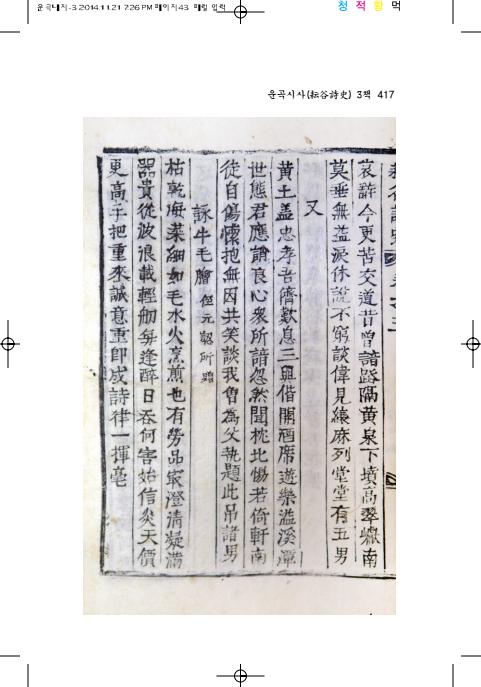 운곡대지-3 2014.11.21 7:26 PM 페이지43 매킬 입력
청 적 황 먹
운곡시사(耘谷詩史) 3책 417
哀辭今更苦交道昔曾諳路隔黃泉下墳高翠巘南
莫垂無益淚休說不窮談偉見縗麻列堂堂有五男
又
黃土盖忠孝吾儕歎息三與偕開酒席遊樂滥溪潭
世態君應謝良心衆所諳忽然聞枕北惕若倚軒南
從自傷懷抱無因共笑談我曾為父執題此吊諸男
詠牛毛膾
枯乾海菜細如毛水火烹煎也有勞品冣澄清凝滿
器貴從波浪載輕舠每逢醉日呑何害始信炎天價
更高手把重來誠意重即成詩律一揮毫